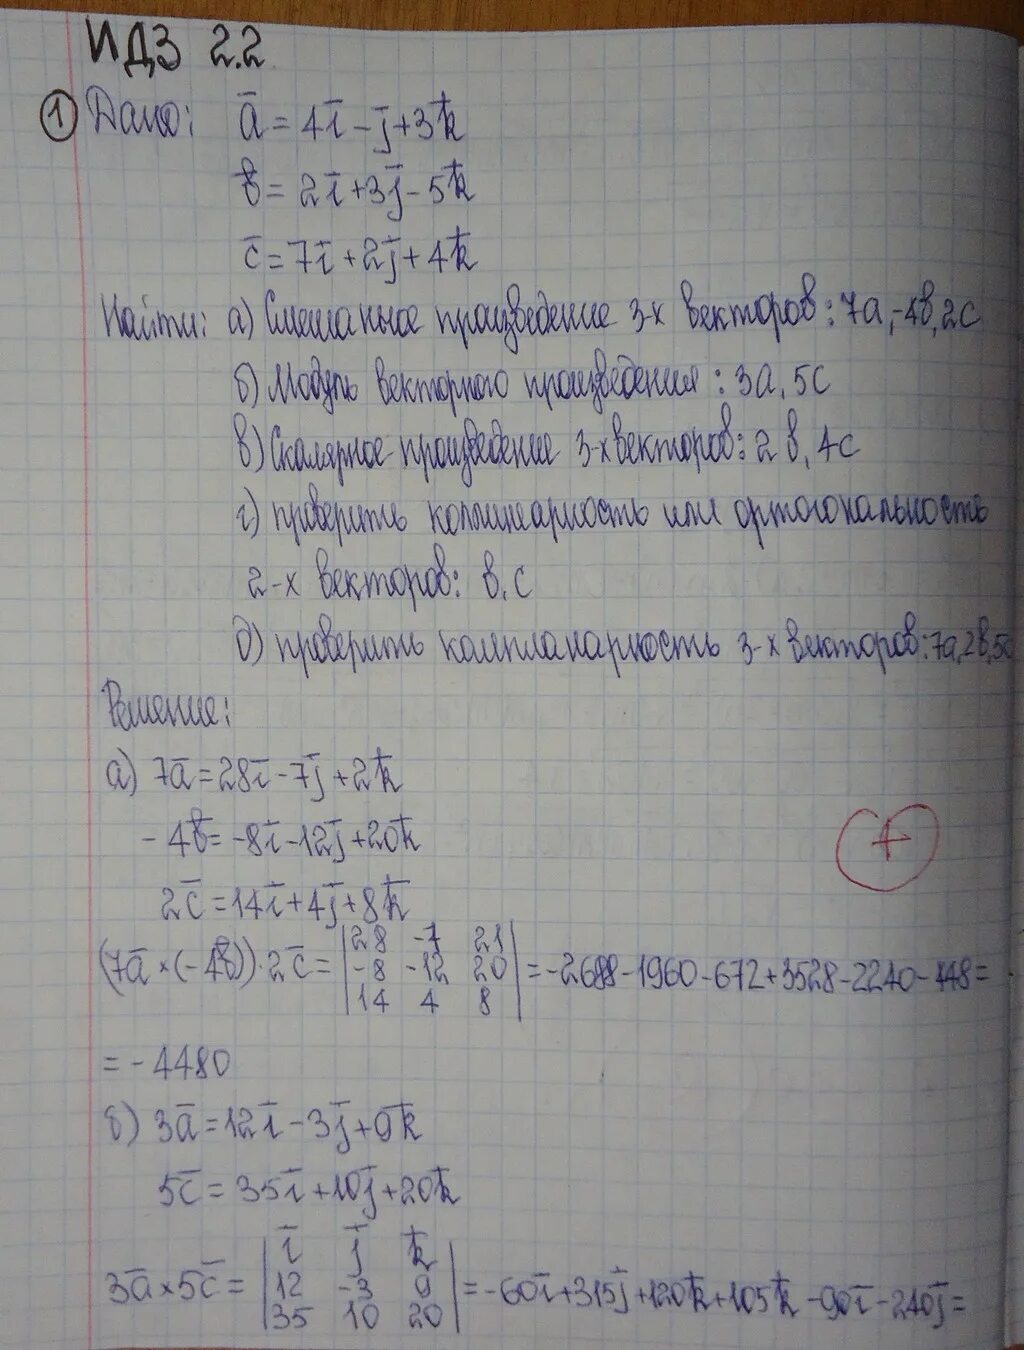 ИДЗ 2.2
① Дано: a̅ = 4i̅ - j̅ + 3k̅
в̅ = 2i̅ + 3j̅ - 5k̅
c̅ = 7i̅ + 2j̅ + 4k̅
Найти: а) Смешанное произведение 3-х векторов: 7a, -4в, 2c
б) Модуль векторного произведения: 3a, 5c
в) Скалярное произведение 3-х векторов: 2в, 4c
г) проверить коллинеарность или ортогональность
2-х векторов: в, c
д) проверить компланарность 3-х векторов: 7a, 2в, 5c
Решение:
а) 7a̅ = 28i̅ - 7j̅ + 2k̅
- 4в̅ = -8i̅ - 12j̅ + 20k̅
2c̅ = 14i̅ + 4j̅ + 8k̅
(7a̅ × (-4в̅)) · 2c̅ = | 28 -7 21 |
| -8 -12 20 | = -2688 - 1960 - 672 + 3528 - 2240 - 448 =
| 14 4 8 |
= - 4480
б) 3a̅ = 12i̅ - 3j̅ + 9k̅
5c̅ = 35i̅ + 10j̅ + 20k̅
| i̅ j̅ k̅ |
3a̅ × 5c̅ = | 12 -3 9 | = -60i̅ + 315j̅ + 120k̅ + 105k̅ - 90i̅ - 240j̅ =
| 35 10 20 |
+